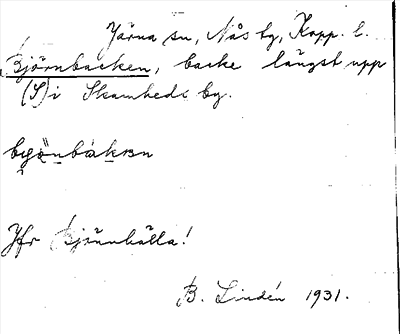 Järna sn, Nås tg, Kopp. l.
Björnbacken, backe längst upp
(S) i Skamheds by.
Jfr Björnkälla!
B. Lindén 1931.